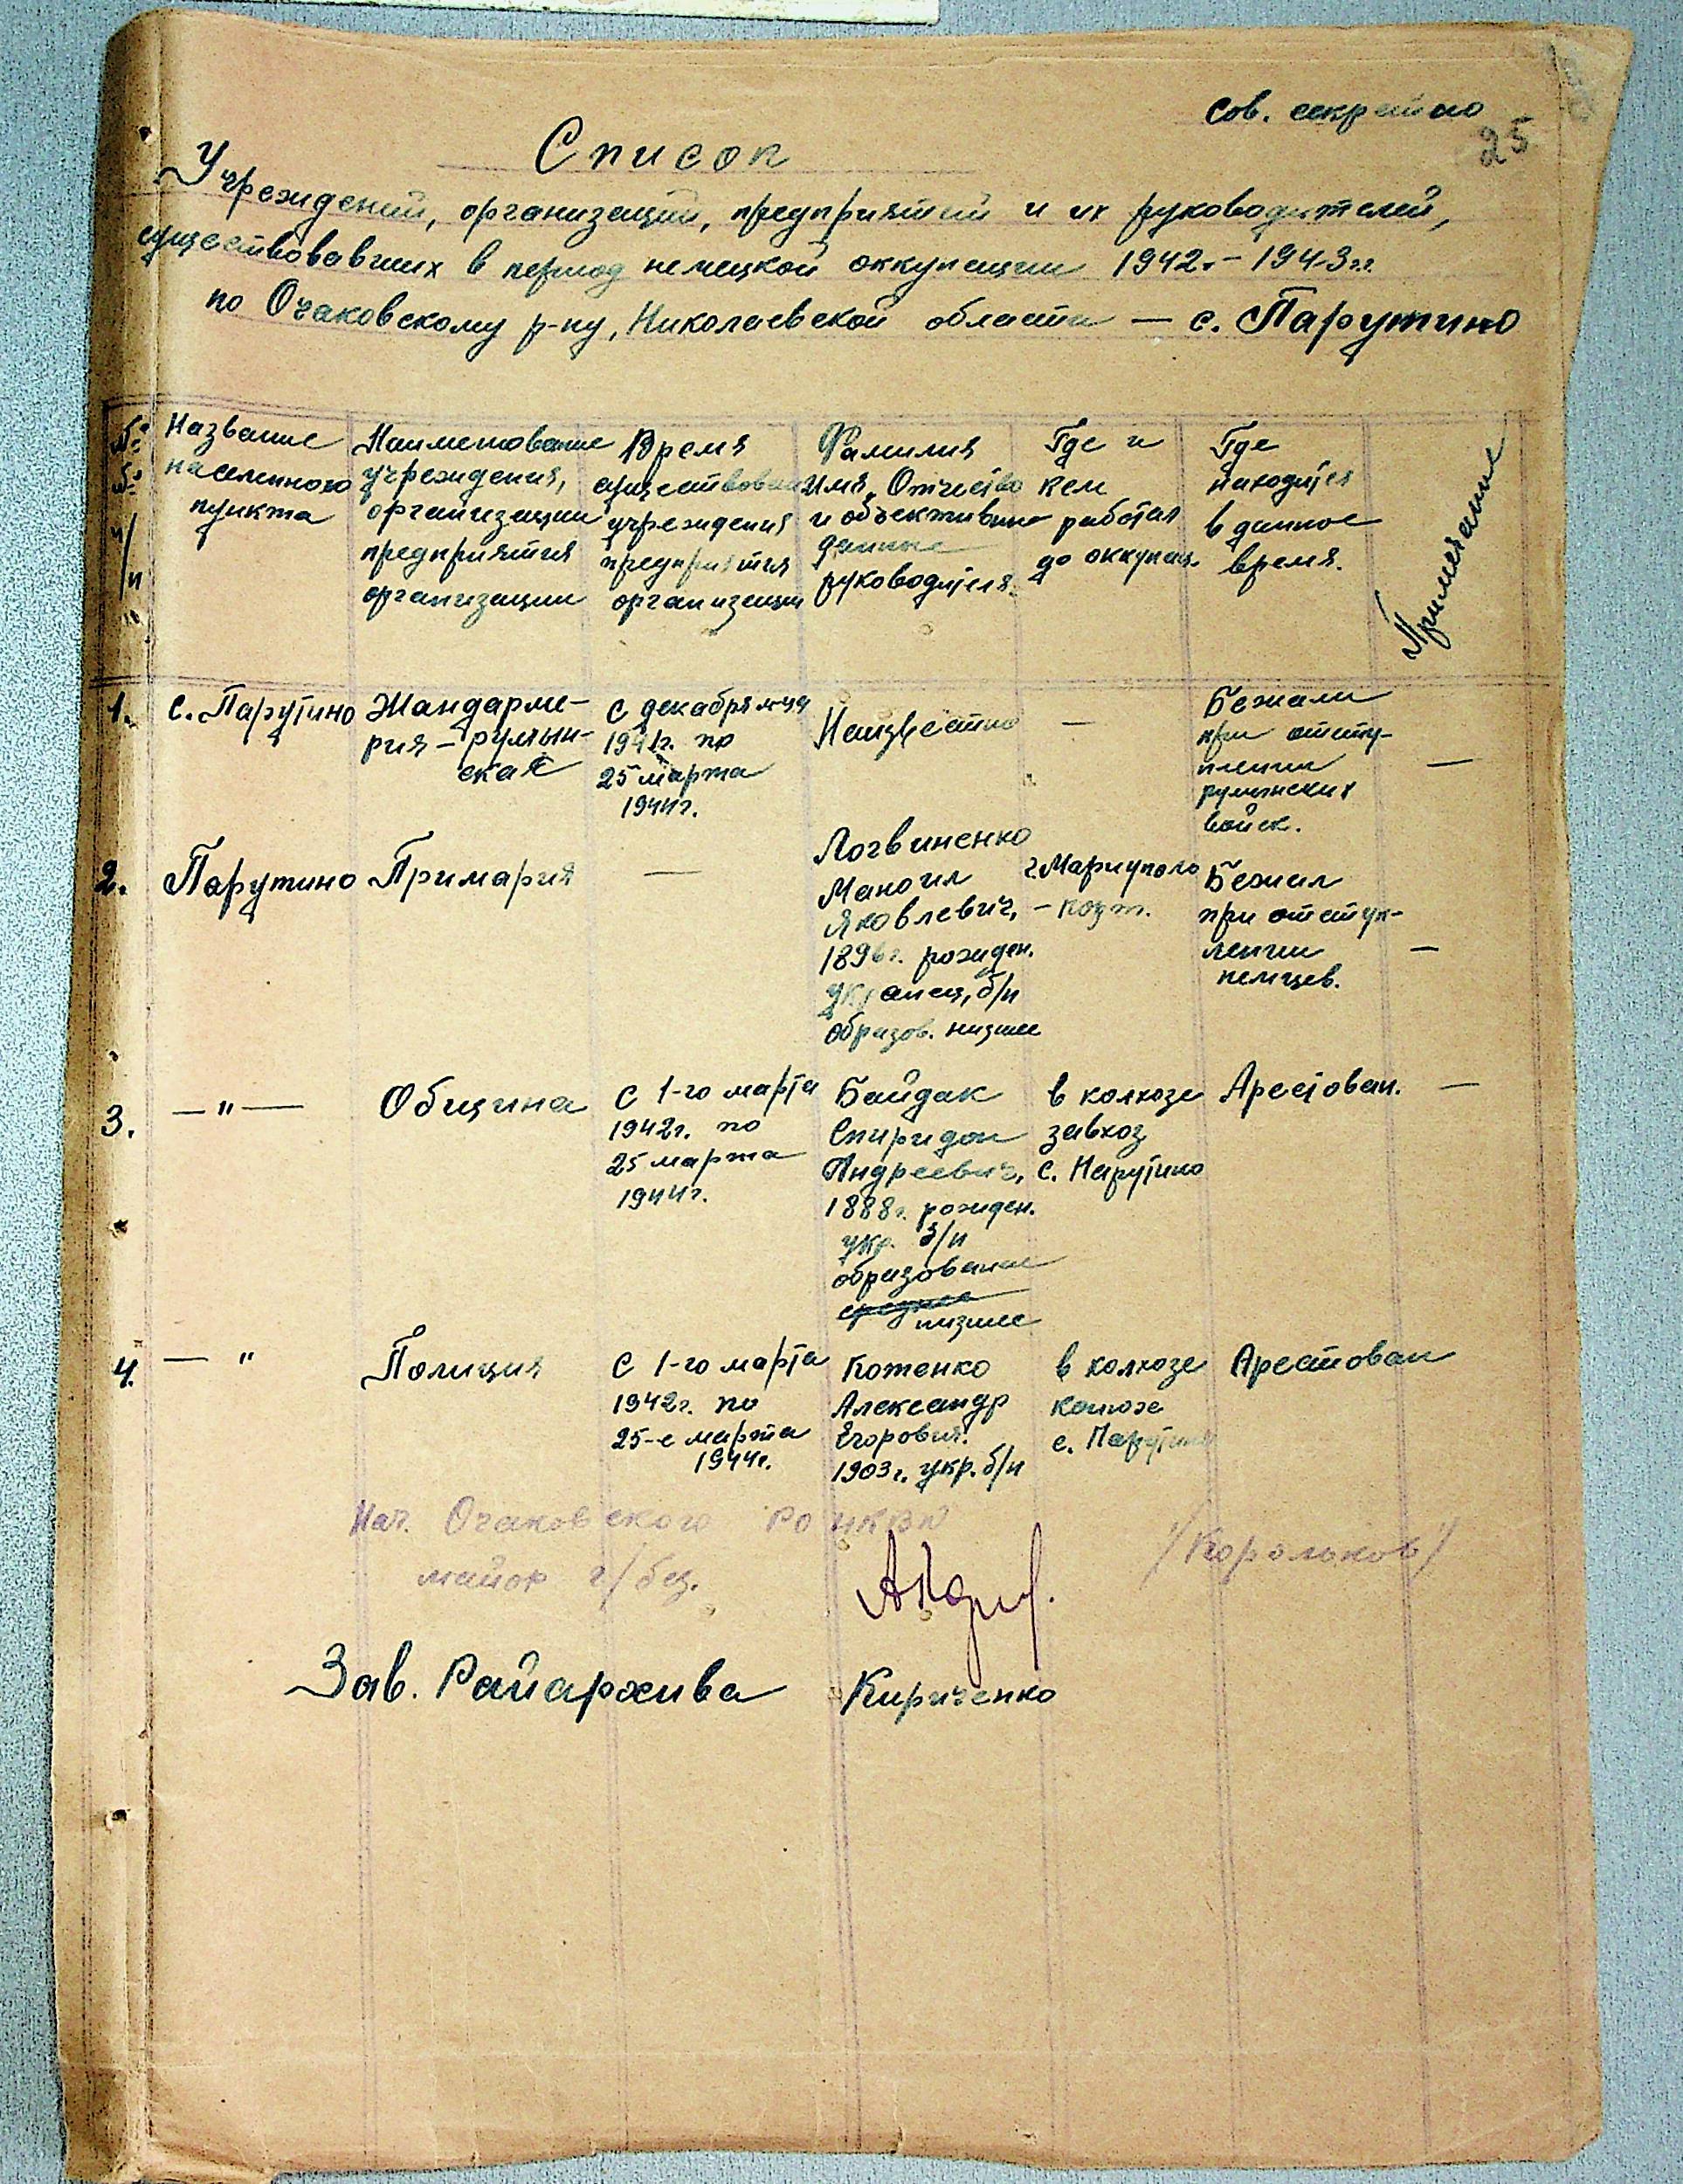 Сов. секретно
25
Список
Учреждений, организаций, предприятий и их руководителей,
существовавших в период немецкой оккупации 1942 - 1943 гг.
по Очаковскому р-ну, Николаевской области — с. Парутино
№№ п/п
Название
населенного
пункта
Наименование
учреждения,
организации
предприятия
организации
Время
существован
учреждения
предприятия
организации
Фамилия
Имя, Отчество
и объективные
данные
руководителя.
Где и
кем
работал
до оккупац.
Где
находится
в данное
время.
Примечание
1.
с. Парутино
Жандарме-
рия - румын-
ская
с декабря м-ца
1941г. по
25 марта
1944г.
Неизвестно
—
Бежали
при отсту-
плении
румынских
войск.
—
2.
Парутино
Примария
—
Логвиненко
Маноил
Яковлевич,
1896г. рожден.
украинец, б/п
образов. низшее
г. Мариуполь
Бежал
при отступ-
лении
немцев.
—
3.
— " —
Община
С 1-го марта
1942г. по
25 марта
1944г.
Байдак
Спиридон
Андреевич,
1888г. рожден.
укр. б/п
образование
среднее
низшее
в колхозе
завхоз
с. Парутино
Арестован.
—
4.
— "
Полиция
С 1-го марта
1942г. по
25-е марта
1944г.
Коженко
Александр
Егорович.
1903г. укр. б/п
в колхозе
конюх
с. Парутино
Арестован
Нач. Очаковского РО НКВД
майор г/без.
/Корольков/
Зав. Райархива Кириченко